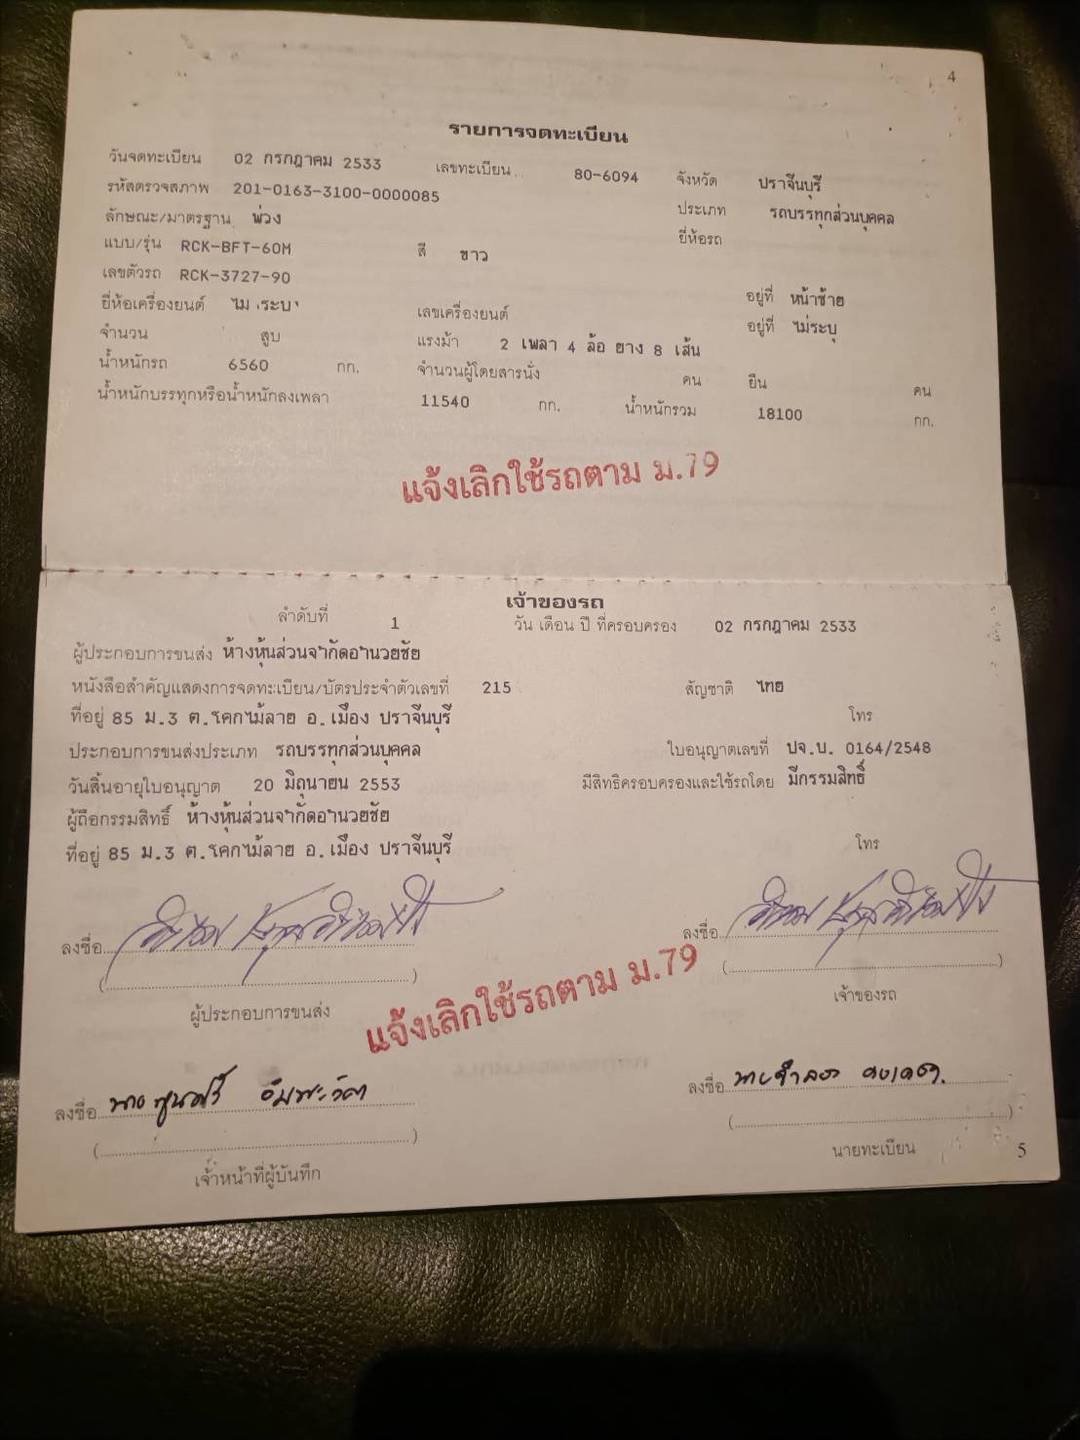 4
รายการจดทะเบียน
วันจดทะเบียน 02 กรกฎาคม 2533 เลขทะเบียน 80-6094 จังหวัด ปราจีนบุรี
รหัสตรวจสภาพ 201-0163-3100-0000085 ประเภท รถบรรทุกส่วนบุคคล
ลักษณะ/มาตรฐาน พ่วง ยี่ห้อรถ
แบบ/รุ่น RCK-BFT-60M สี ขาว
เลขตัวรถ RCK-3727-90 อยู่ที่ หน้าซ้าย
ยี่ห้อเครื่องยนต์ ไม่ระบุ เลขเครื่องยนต์ อยู่ที่ ไม่ระบุ
จำนวน สูบ แรงม้า 2 เพลา 4 ล้อ ยาง 8 เส้น
น้ำหนักรถ 6560 กก. จำนวนผู้โดยสารนั่ง คน ยืน คน
น้ำหนักบรรทุกหรือน้ำหนักลงเพลา 11540 กก. น้ำหนักรวม 18100 กก.
แจ้งเลิกใช้รถตาม ม.79
เจ้าของรถ
ลำดับที่ 1 วัน เดือน ปี ที่ครอบครอง 02 กรกฎาคม 2533
ผู้ประกอบการขนส่ง ห้างหุ้นส่วนจำกัดอำนวยชัย
หนังสือสำคัญแสดงการจดทะเบียน/บัตรประจำตัวเลขที่ 215 สัญชาติ ไทย
ที่อยู่ 85 ม.3 ต.โคกไม้ลาย อ.เมือง ปราจีนบุรี โทร
ประกอบการขนส่งประเภท รถบรรทุกส่วนบุคคล ใบอนุญาตเลขที่ ปจ.บ. 0164/2548
วันสิ้นอายุใบอนุญาต 20 มิถุนายน 2553 มีสิทธิครอบครองและใช้รถโดย มีกรรมสิทธิ์
ผู้ถือกรรมสิทธิ์ ห้างหุ้นส่วนจำกัดอำนวยชัย
ที่อยู่ 85 ม.3 ต.โคกไม้ลาย อ.เมือง ปราจีนบุรี โทร
ลงชื่อ ลงชื่อ
( ) ( )
ผู้ประกอบการขนส่ง เจ้าของรถ
แจ้งเลิกใช้รถตาม ม.79
ลงชื่อ ลงชื่อ
( ) ( )
เจ้าหน้าที่ผู้บันทึก นายทะเบียน
5